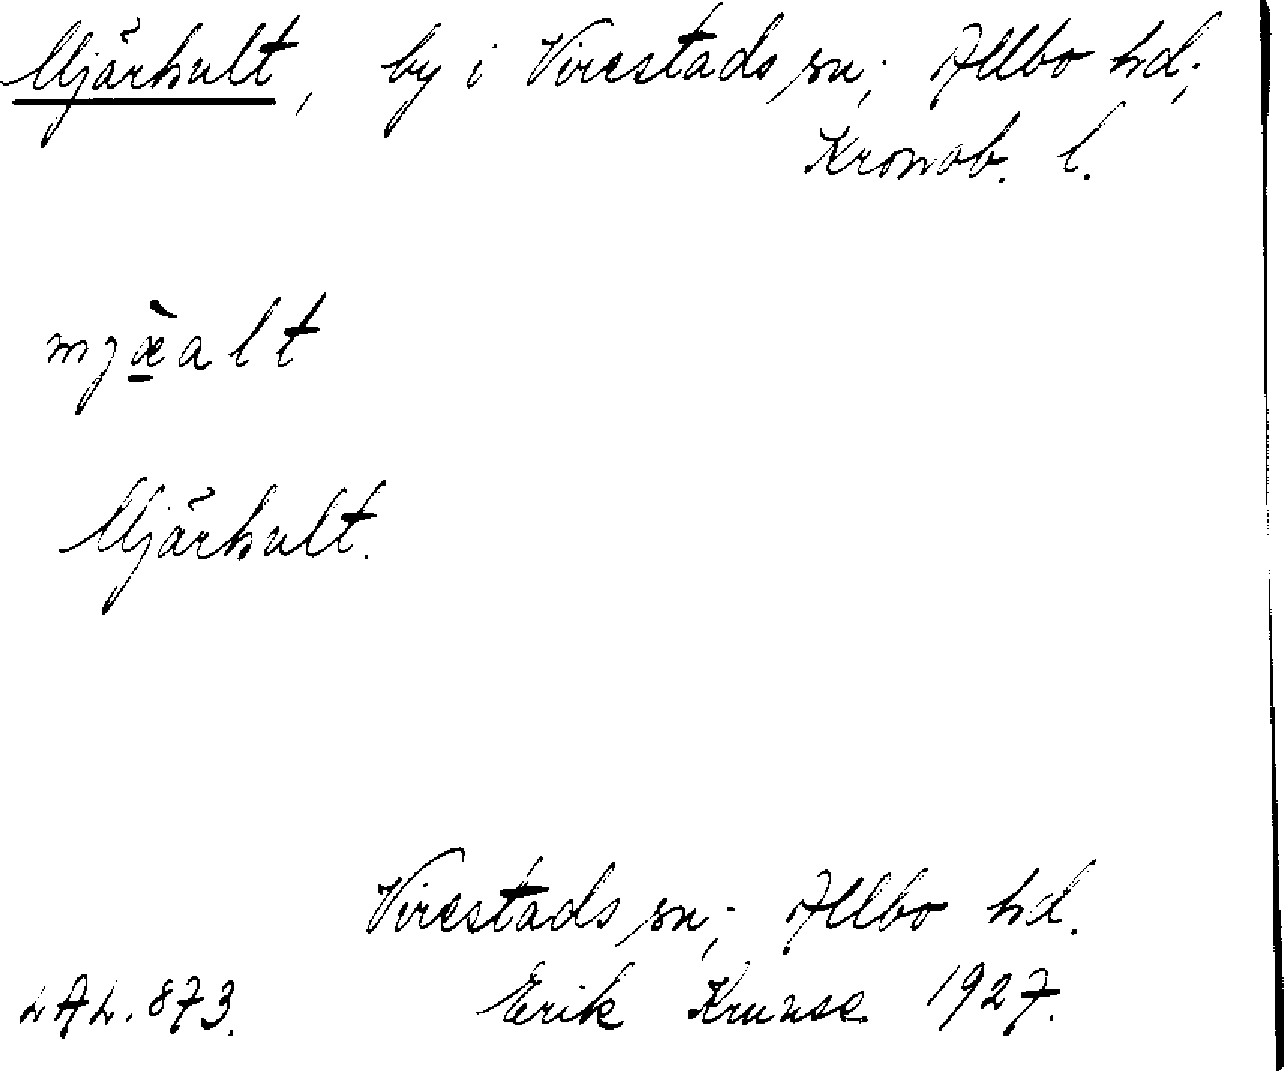 Mjärhult, by i Virestads sn; Allbo hd;
Kronob. l.
mjæ̀alt
Mjärhult.
Virestads sn; Allbo hd.
LAL. 873. Erik Kruuse 1927.